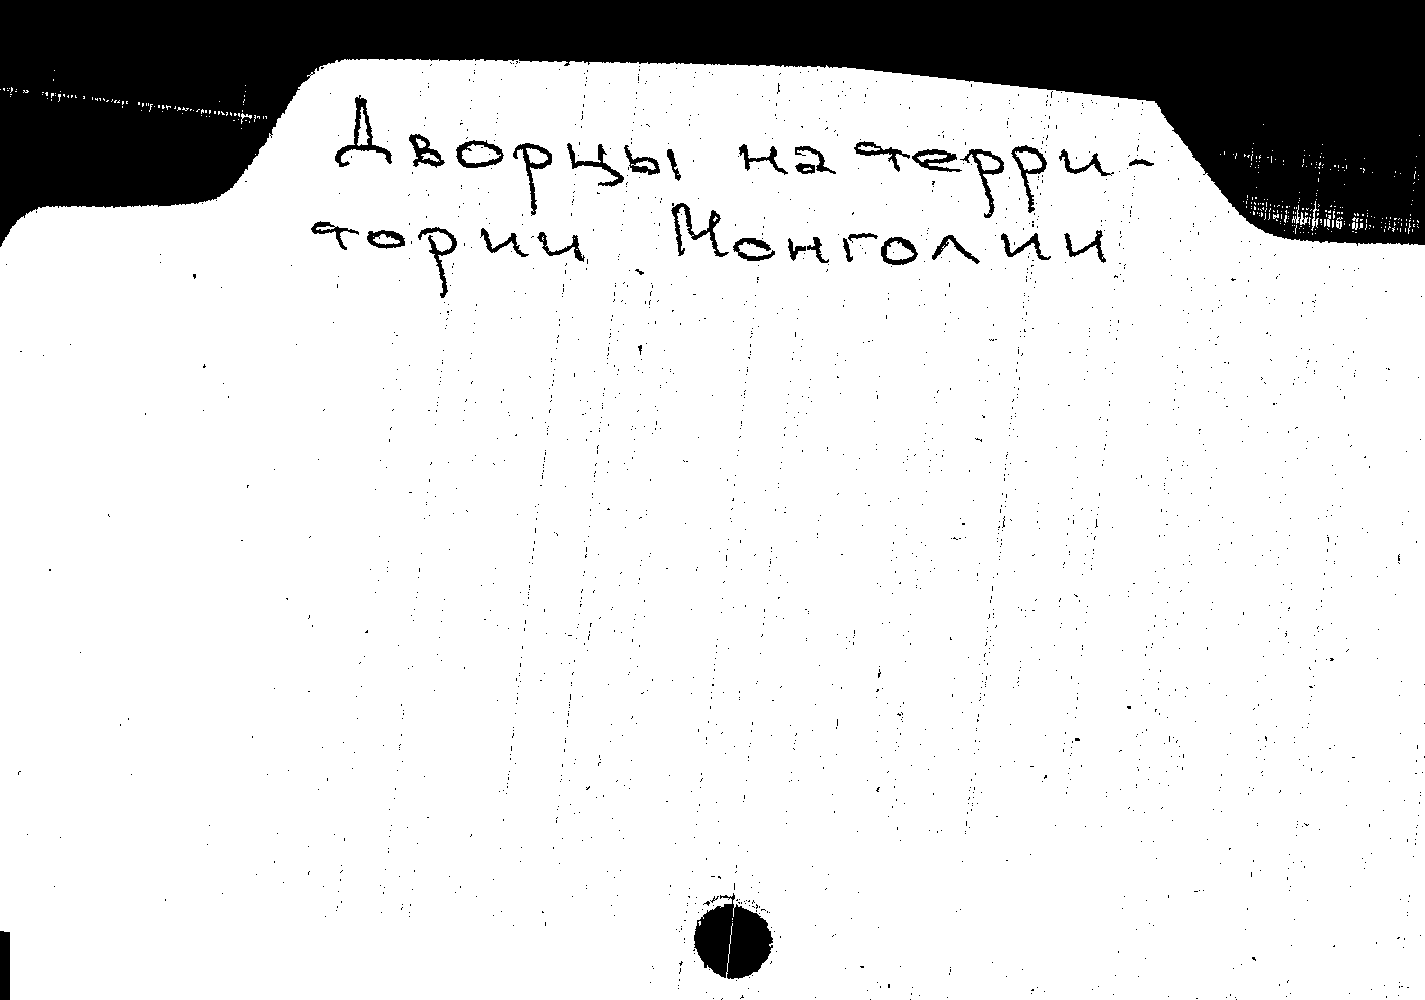 Дворцы на терри-
тории Монголии